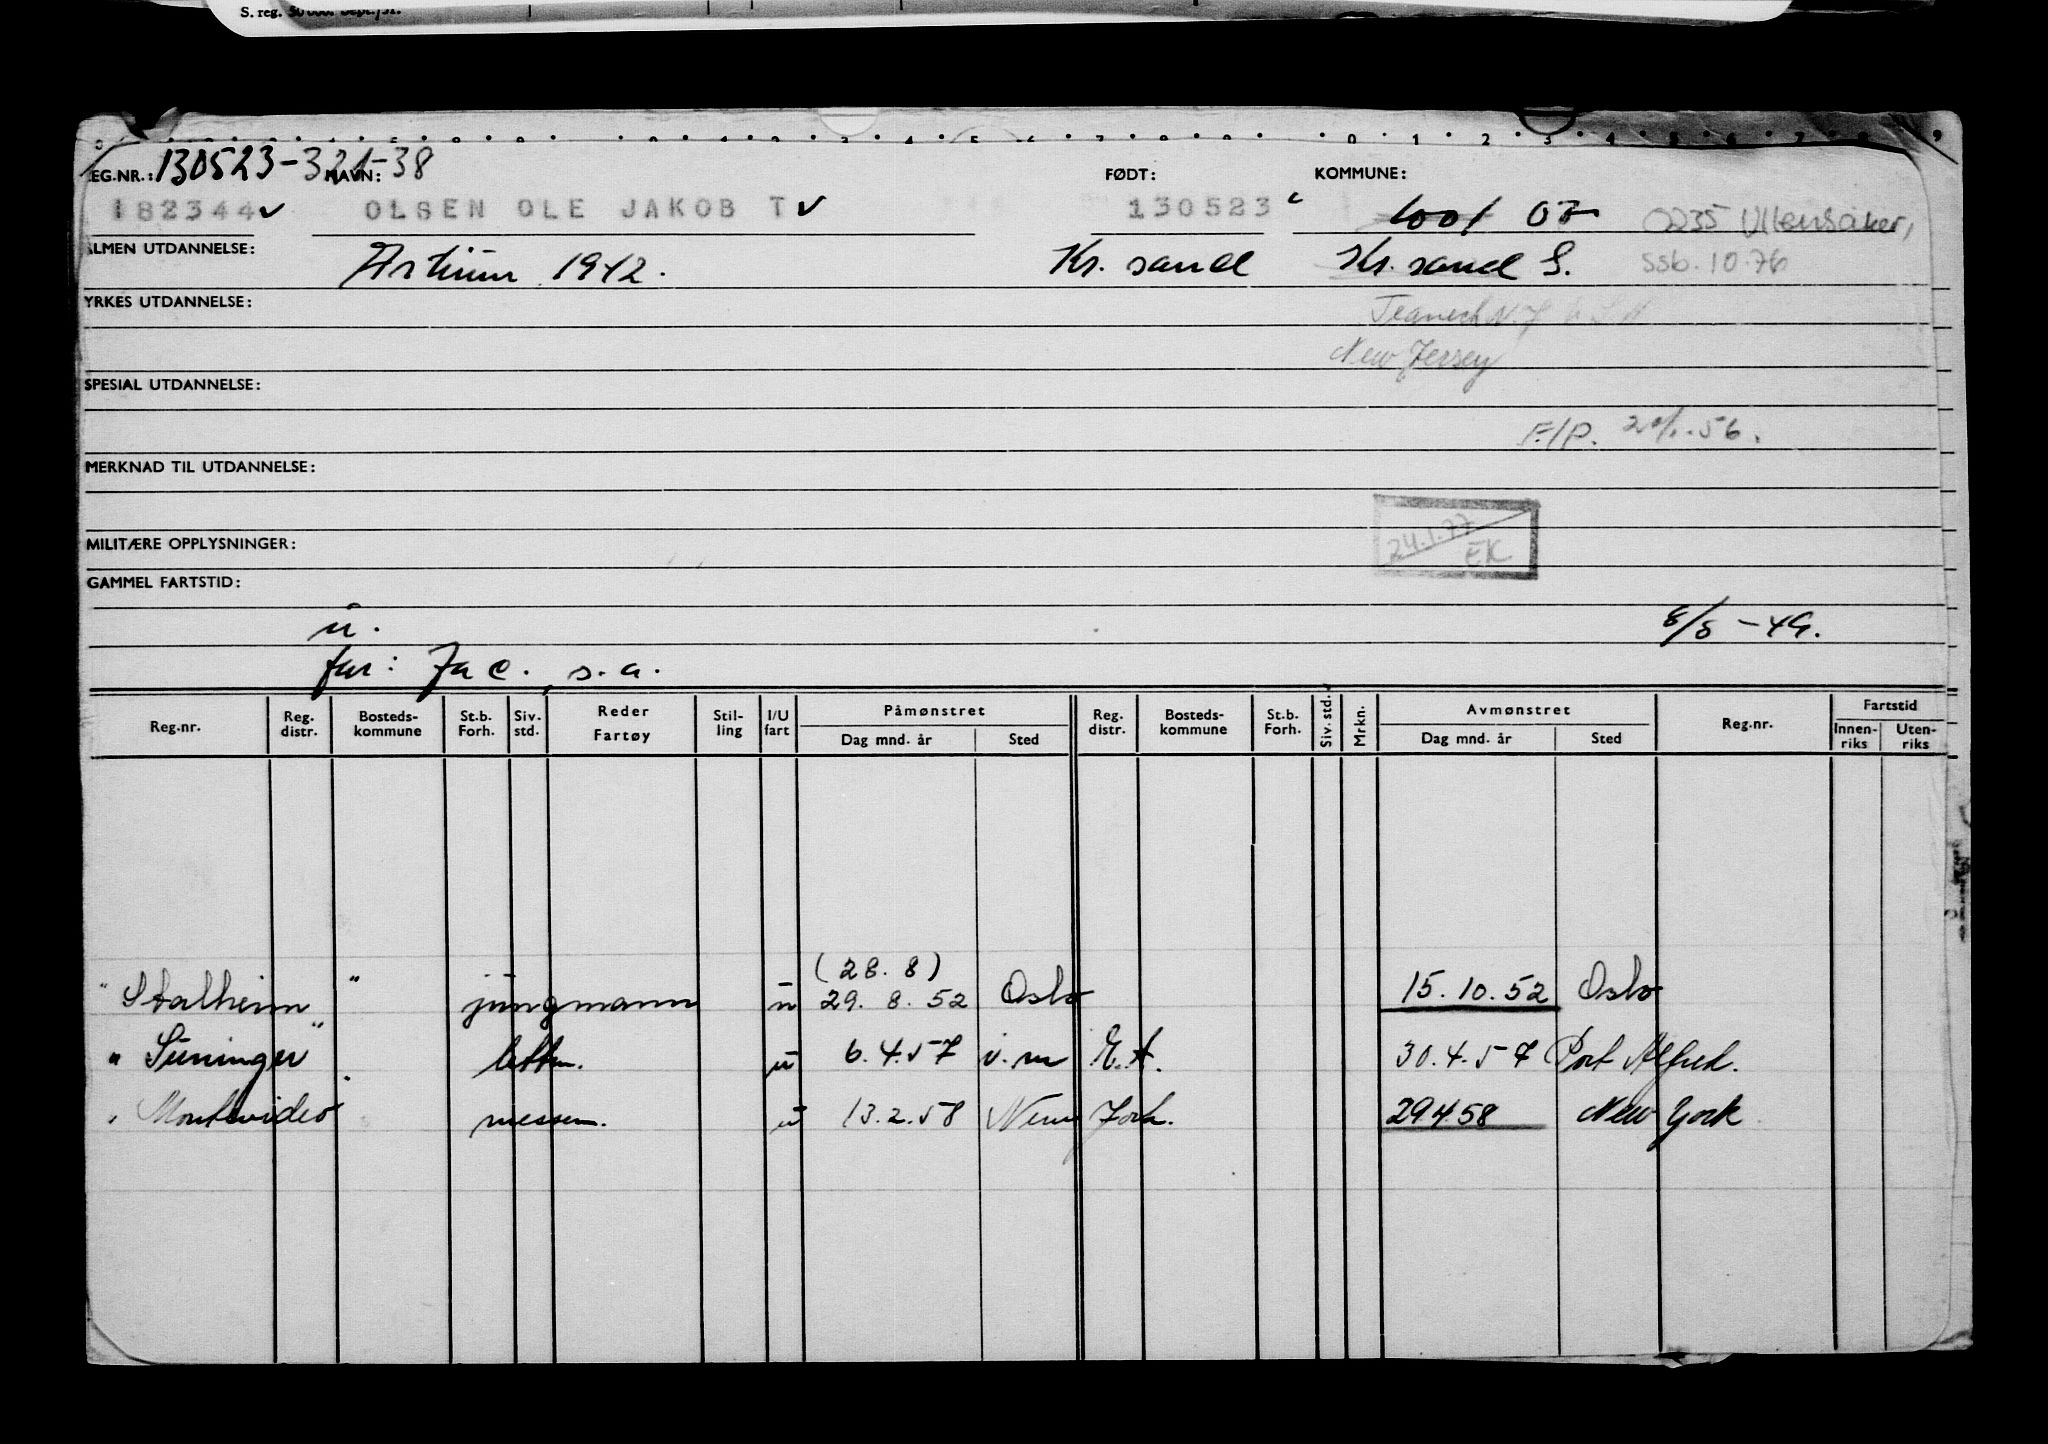 S. reg. 50 000. Sept./51.
EG.NR.: 130523-321-38 NAVN: FØDT: KOMMUNE:
182344 ✓ OLSEN OLE JAKOB T ✓ 130523 1001 07 0235 Ullensaker,
ALMEN UTDANNELSE: Artium 1942. Kr. sand Kr. sand S. ssb. 10.76
YRKES UTDANNELSE: Teaneck N.J.
New Jersey
SPESIAL UTDANNELSE:
F/P. 20/1.-56.
MERKNAD TIL UTDANNELSE:
MILITÆRE OPPLYSNINGER: 24.1.77 EK
GAMMEL FARTSTID:
u. 8/8-49.
far: Jac., s.a.
Reg.nr. Reg. distr. Bosteds- kommune St.b. Forh. Siv. std. Reder Fartøy Stil- ling I/U fart Påmønstret Dag mnd. år Sted Reg. distr. Bosteds- kommune St.b. Forh. Siv. std. Mrkn. Avmønstret Dag mnd. år Sted Reg.nr. Fartstid Innen- riks Uten- riks
(28. 8)
" Stalheim " jungmann u 29. 8. 52 Oslo 15.10.52 Oslo
" " lettm. u 6.4.57 i.m E.A. 30.4.57 Port Alfred.
" Montevideo messm. u 13.2.58 New York. 29.4.58 New York